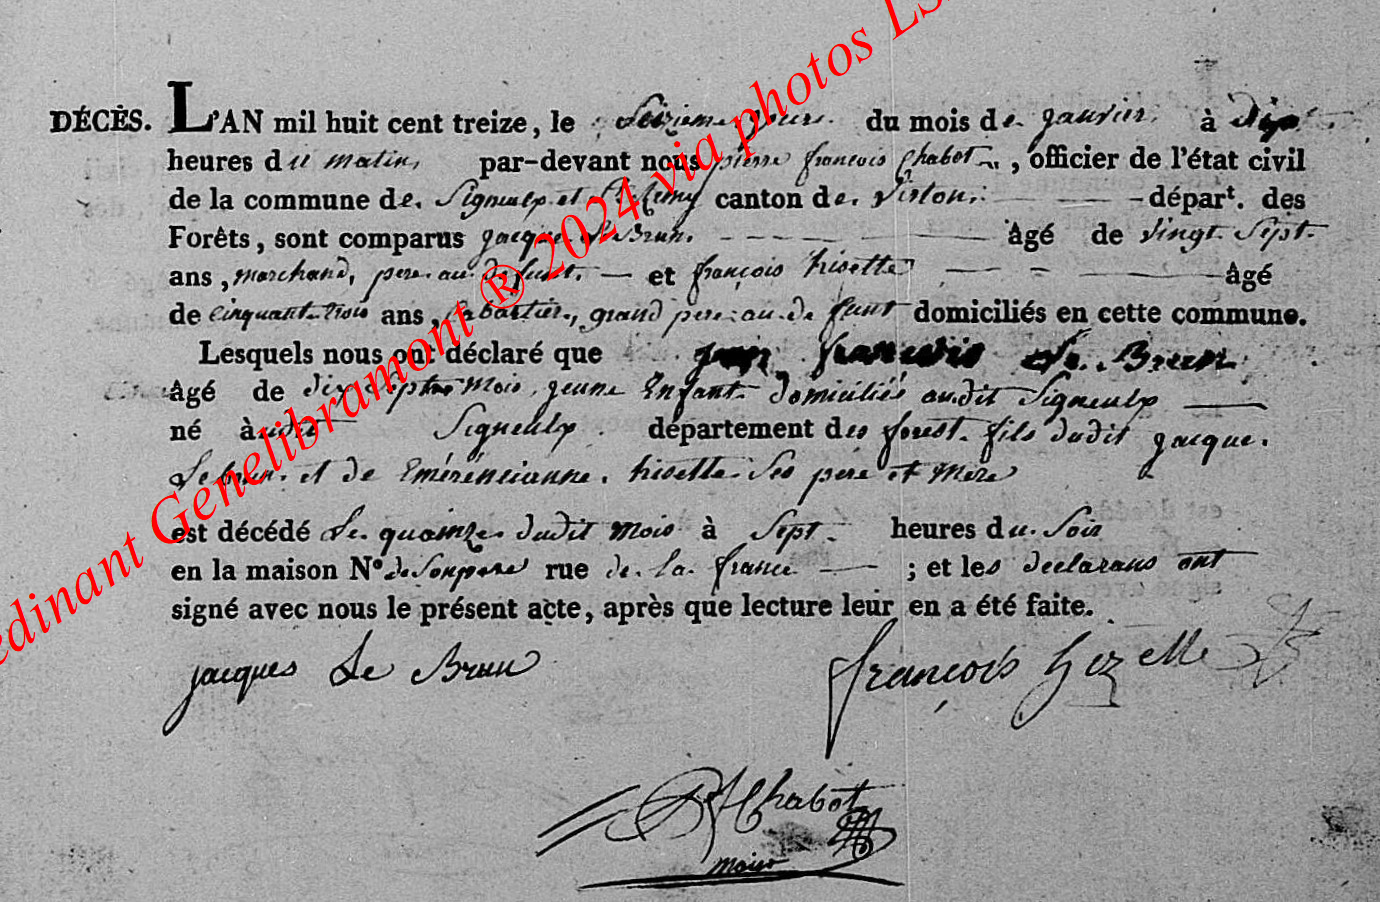 DÉCÈS. L'AN mil huit cent treize, le Seizieme jour du mois de janvier à
heures du matin, par-devant nous pierre françois Chabot, officier de l'état civil
de la commune de Signeulx et St Remy canton de Virton: départ. des
Forêts, sont comparus jacque Le Brun. âgé de vingt Sept
ans, marchand, pere au defunt et françois hisette âgé
de cinquant trois ans, Cabartier, grand pere au defunt domiciliés en cette commune.
Lesquels nous ont déclaré que jean francois Le Brun
âgé de dix Sept mois jeune Enfant domiciliés audit Signeulx
né audit Signeulx département des forest fils dudit jacque
Le brun et de Emérencianne hisette Ses pere et mere
est décédé Le quainze dudit mois à Sept heures du Soir
en la maison N° rue de La france ; et les declarans ont
signé avec nous le présent acte, après que lecture leur en a été faite.
jacques Le Brun françois hizette
Chabot
maire
edinant Genelibramont ® 2024 via photos LS